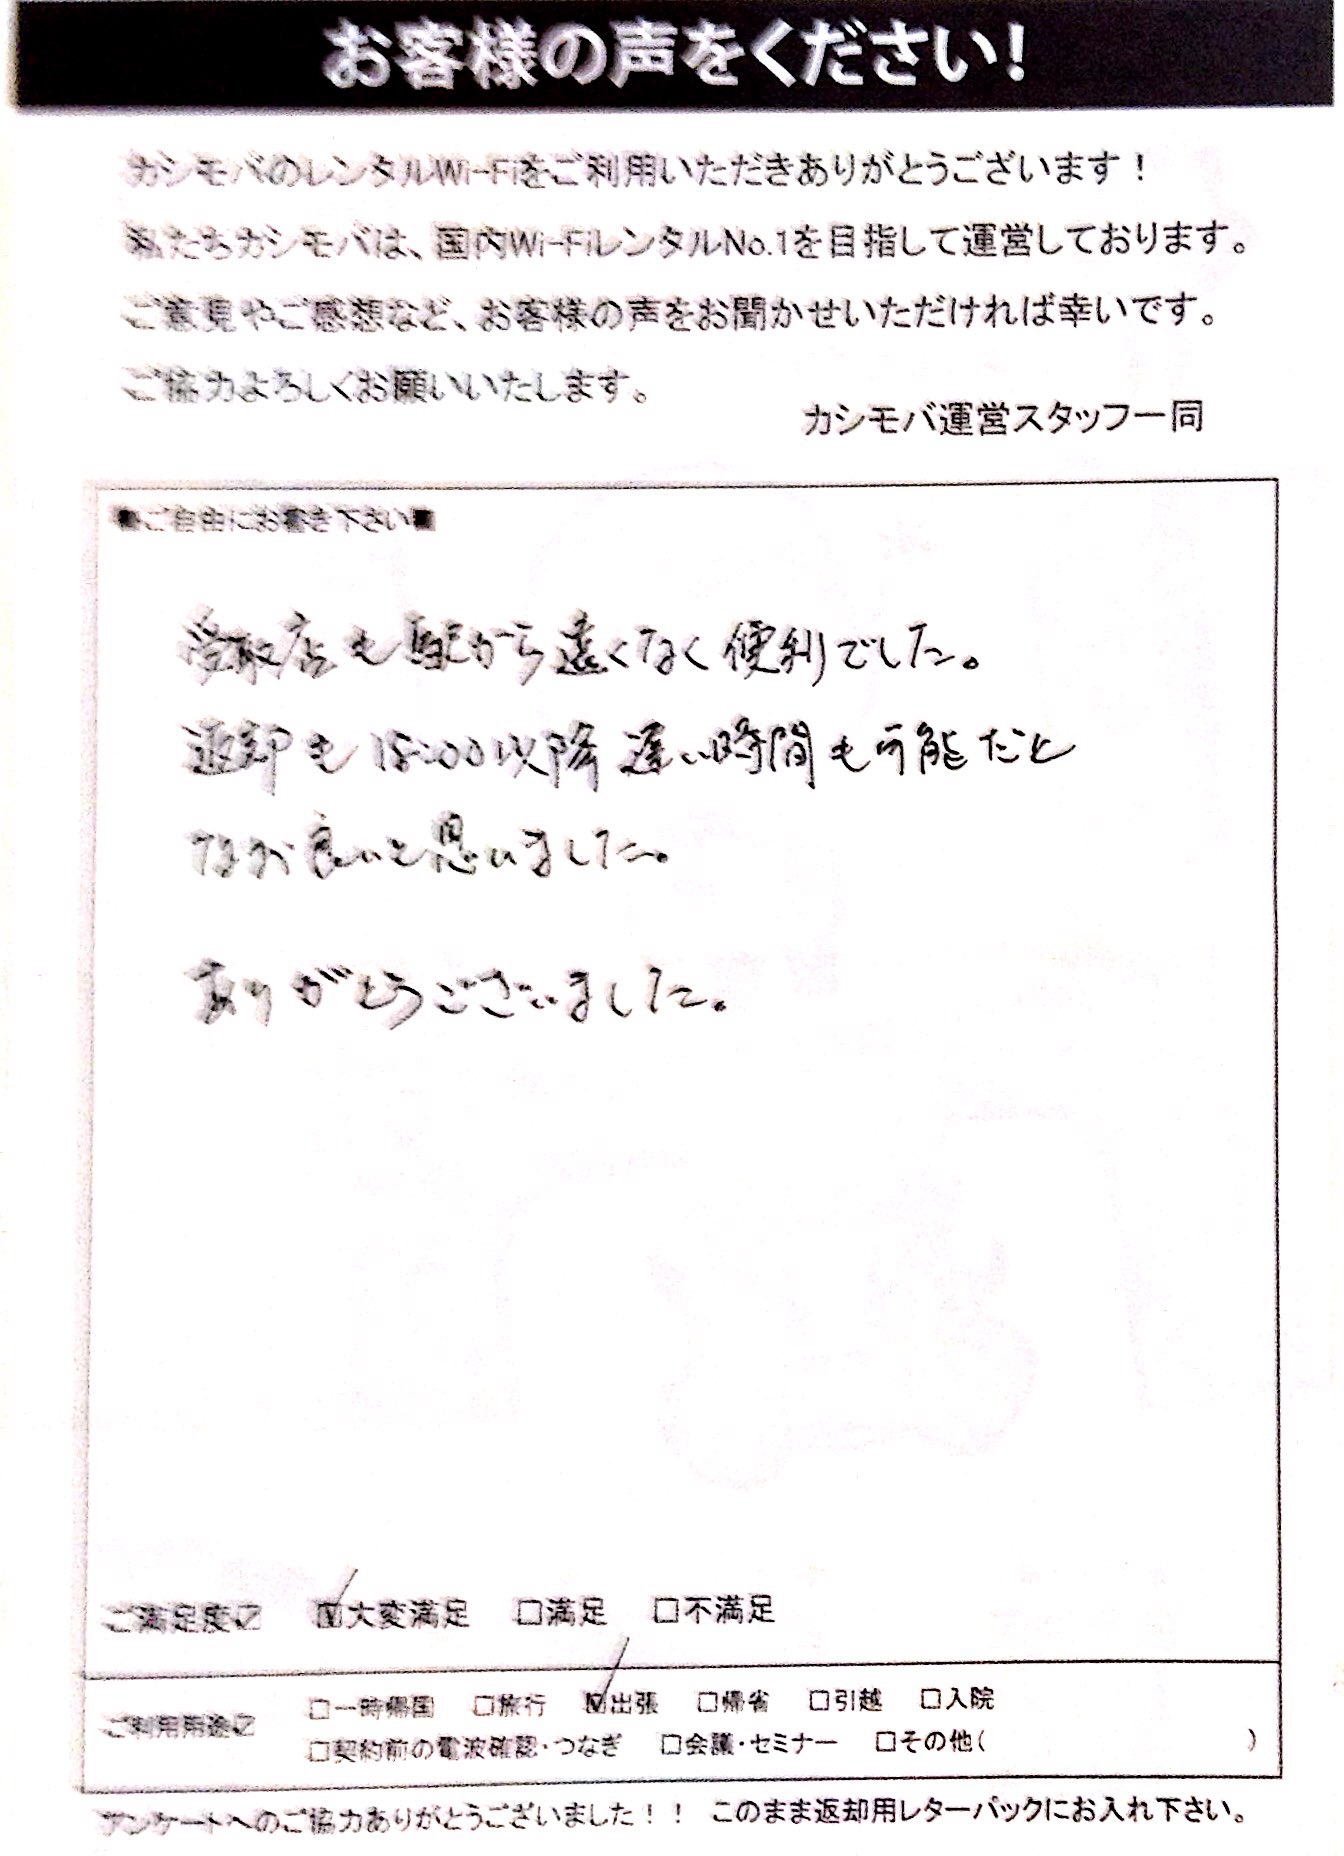 お客様の声をください！
カシモバのレンタルWi-Fiをご利用いただきありがとうございます！
私たちカシモバは、国内Wi-FiレンタルNo.1を目指して運営しております。
ご意見やご感想など、お客様の声をお聞かせいただければ幸いです。
ご協力よろしくお願いいたします。
カシモバ運営スタッフ一同
■ご自由にお書き下さい■
受取店も駅から遠くなく便利でした。
返却も18:00以降遅い時間も可能だと
なお良いと思いました。
ありがとうございました。
ご満足度☑ ☑大変満足 □満足 □不満足
ご利用用途☑ □一時帰国 □旅行 ☑出張 □帰省 □引越 □入院
□契約前の電波確認・つなぎ □会議・セミナー □その他( )
アンケートへのご協力ありがとうございました！！ このまま返却用レターパックにお入れ下さい。